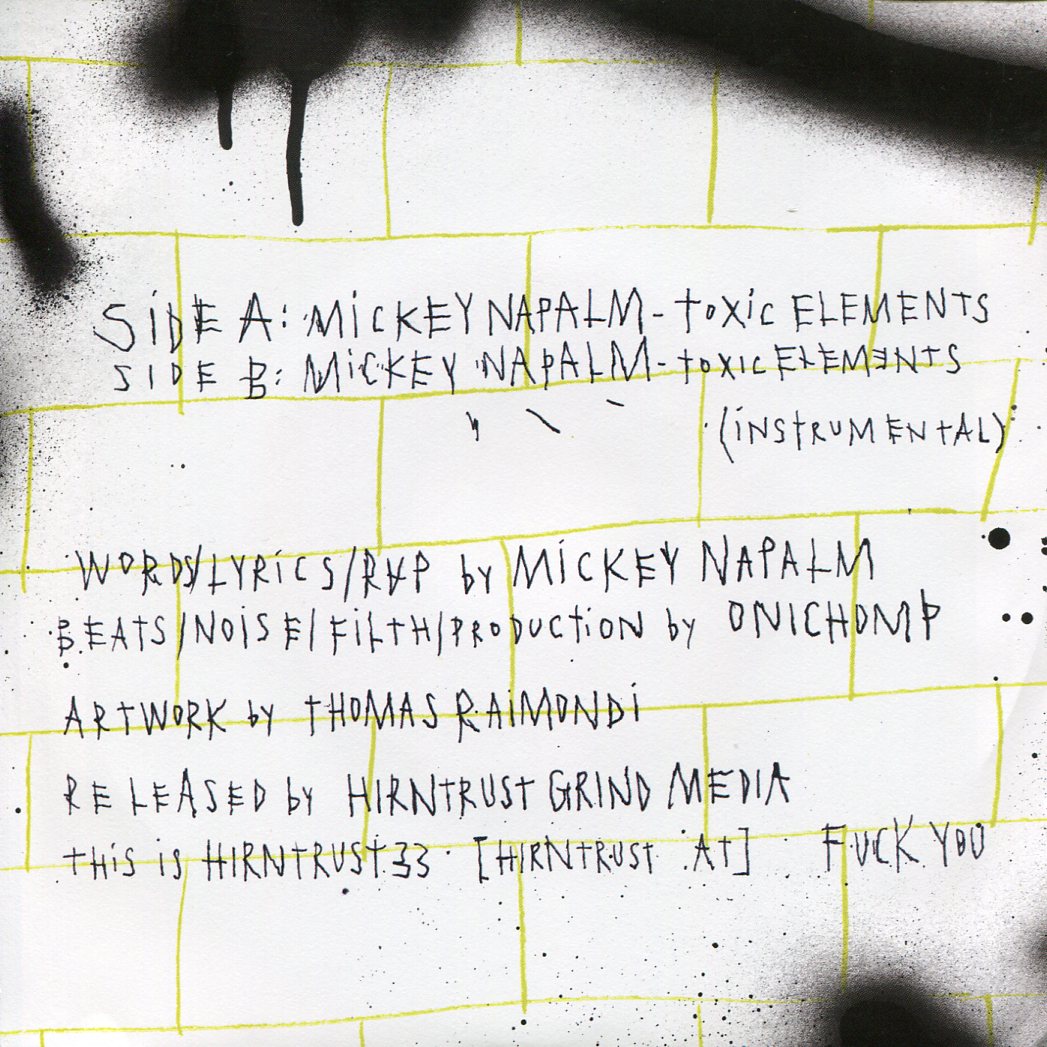 SiDE A: MiCKEY NAPALM - toxic ELEMENTS
SIDE B: MiCKEY NAPALM - toxic ELEMENTS
(iNStRUMENtAL)
WORDS/LYRiCS/RAP by MiCKEY NAPALM
BEATS/NOiSE/FiLTH/PRODUCtiON by ONICHOMP
ARTWORK by THOMAS RAiMONDi
RELEASED by HIRNTRUST GRIND MEDIA
tHiS iS HIRNTRUST33 [HIRNTRUST.At] FUCK YOU